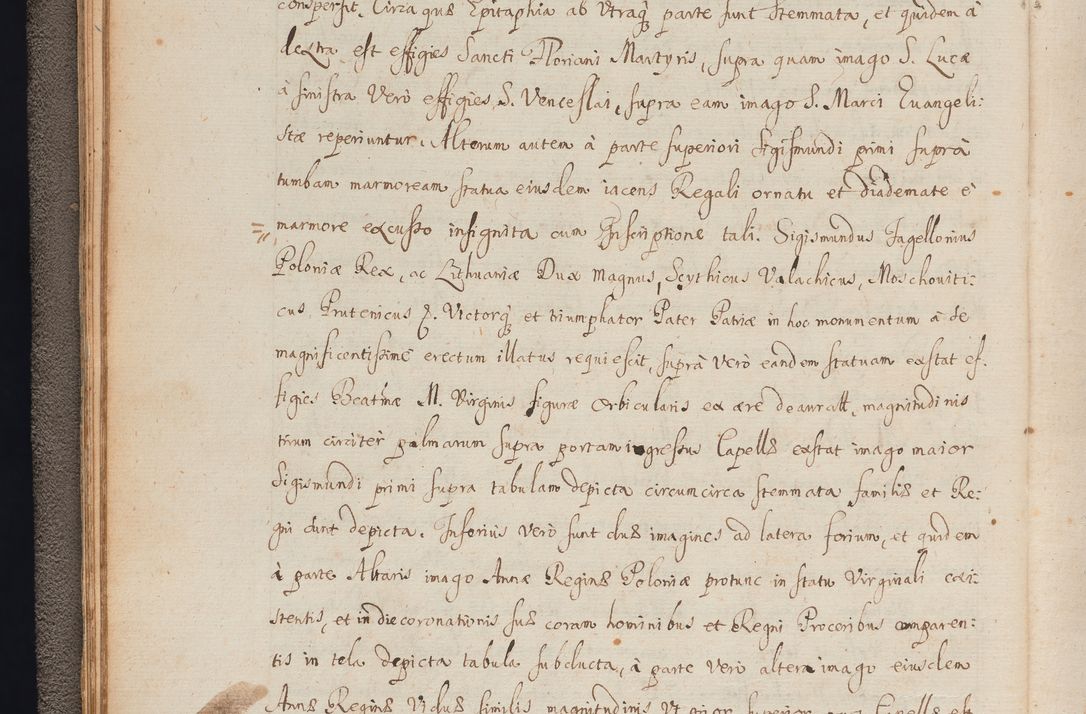 conspersit. Circa quæ Epitaphia ab utraq3 parte sunt stemmata, et quidem à
dextra est effigies Sancti Floriani Martyris, supra quam imago S. Lucæ
à sinistra verò effigies S. Venceslai, supra eam imago S. Marci Euangeli:
stæ reperiuntur. Alterum autem à parte superiori Sigismundi primi suprà
tumbam marmoream statua eiusdem iacens Regali ornatu et diademate è
marmore excusso insignita cum Inscriptione tali. Sigismundus Jagellonius
Poloniæ Rex, ac Lithuaniæ Dux Magnus, Scythicus Valachicus, Moschouiti:
cus Prutenicus &. Victorq3 et triumphator Pater Patriæ in hoc monumentum à se
magnificentissime erectum illatus requiescit, suprà verò eandem statuam exstat ef:
figies Beatmæ M. Virginis figuræ orbicularis ex ære deauratæ, magnitudinis
trium circiter palmarum supra portam ingressus Capellæ exstat imago maior
Sigismundi primi supra tabulam depicta circumcirca stemmata familiæ et Re:
gni sunt depicta. Inferius verò sunt duæ imagines ad latera forium, et quidem
à parte Altaris imago Annæ Reginæ Poloniæ protunc in statu Virginali exi:
stentis, et in die coronationis suæ coram hominibus et Regni Proceribus comparen:
tis in tela depicta tabula subducta, à parte verò altera imago eiusdem
Annæ Reginæ Viduæ similis magnitudinis ut prior Capellæ